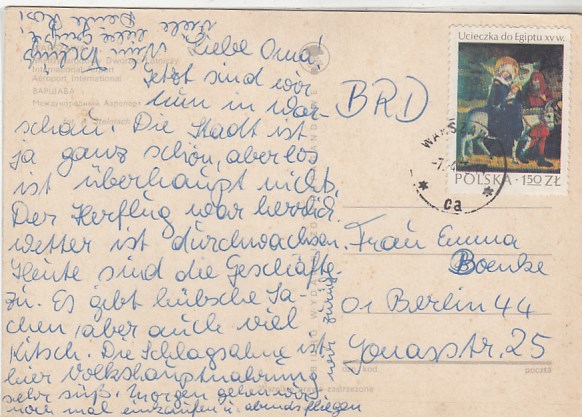 Liebe Oma!
Jetzt sind wir
nun in War-
schau. Die Stadt ist
ja ganz schön, aber los
ist überhaupt nichts.
Der Herflug war herrlich
wetter ist durchwachsen
Heute sind die Geschäfte
zu. Es gibt hübsche Sa-
chen, aber auch viel
Kitsch. Die Schlagsahne ist
hier Volkshauptnahrung
sehr süß. Morgen gehen wir
noch mal einkaufen u. abends fliegen
wir zurück.
Viele
liebe Grüße
International Airport
Aéroport International
Ucieczka do Egiptu XV w.
POLSKA · 1,50 ZŁ
WARSZAWA
ca
BRD
Frau Emma
Boenke
01 Berlin 44
Jonasstr. 25
kod
poczta
zastrzeżone